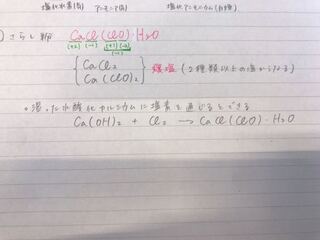 塩化水素(気) アンモニア(気) 塩化アンモニウム(白煙)
) さらし粉 CaCl(ClO)・H₂O
(+2) (-1) (+1) (-2)
(-1)
{ CaCl₂
Ca(ClO)₂ } 複塩 (2種類以上の塩からなる)
◦湿った水酸化カルシウムに塩素を通じるとできる
Ca(OH)₂ + Cl₂ → CaCl(ClO)・H₂O